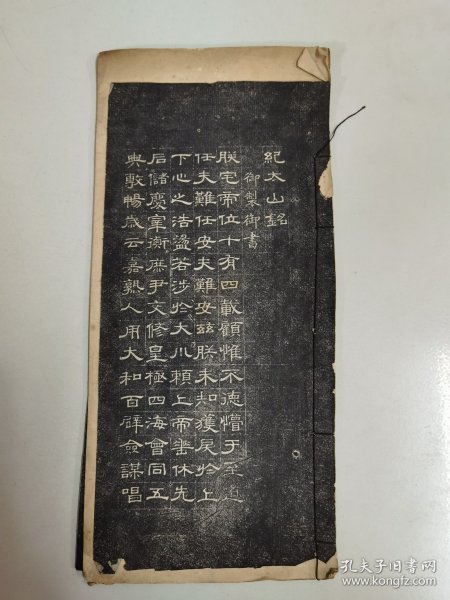 紀太山銘
御製御書
朕宅帝位十有四載顧惟不德懵于至道
任夫難任安夫難安茲朕未知獲戾於上
下心之浩盪若涉於大川賴上帝垂休先
后儲慶宰衡庶尹交修皇極四海會同五
典敷暢歲云嘉熟人用大和百辟僉謀唱
孔夫子旧书网
www.kongfz.com